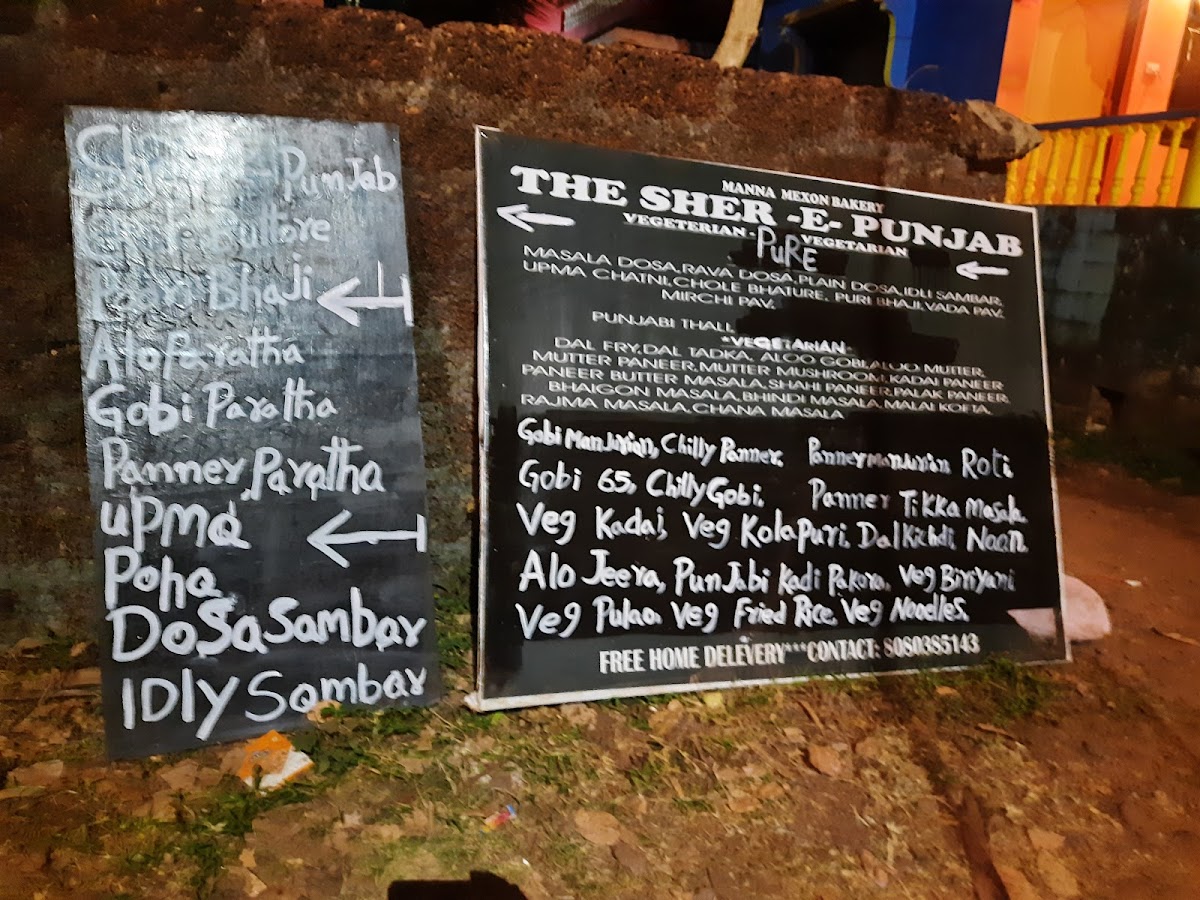 Sher-e-Punjab
Chole Bultore
Poori bhaji
Alo Paratha
Gobi Paratha
Panner Paratha
uPma
Poha
Dosa Sambar
IDly Sambar
MANNA MEXON BAKERY
THE SHER -E- PUNJAB
VEGETERIAN - PuRE VEGETARIAN
MASALA DOSA,RAVA DOSA,PLAIN DOSA,IDLI SAMBAR,
UPMA CHATNI,CHOLE BHATURE, PURI BHAJI,VADA PAV,
MIRCHI PAV.
PUNJABI THALI,
*VEGETARIAN-
DAL FRY,DAL TADKA, ALOO GOBI,ALOO MUTTER,
MUTTER PANEER,MUTTER MUSHROOM,KADAI PANEER
PANEER BUTTER MASALA,SHAHI PANEER,PALAK PANEER,
BHAIGON MASALA,BHINDI MASALA,MALAI KOFTA,
RAJMA MASALA,CHANA MASALA
Gobi Manjurian, Chilly Panner, Panner manjurian Roti
Gobi 65, Chilly Gobi, Panner Tikka Masala
Veg Kadai, Veg Kolapuri, Dal Kichdi, Naan,
Alo Jeera, Punjabi Kadi Pakora, Veg Biriyani
Veg Pulao, Veg Fried Rice, Veg Noodles,
FREE HOME DELEVERY***CONTACT: 8080385143